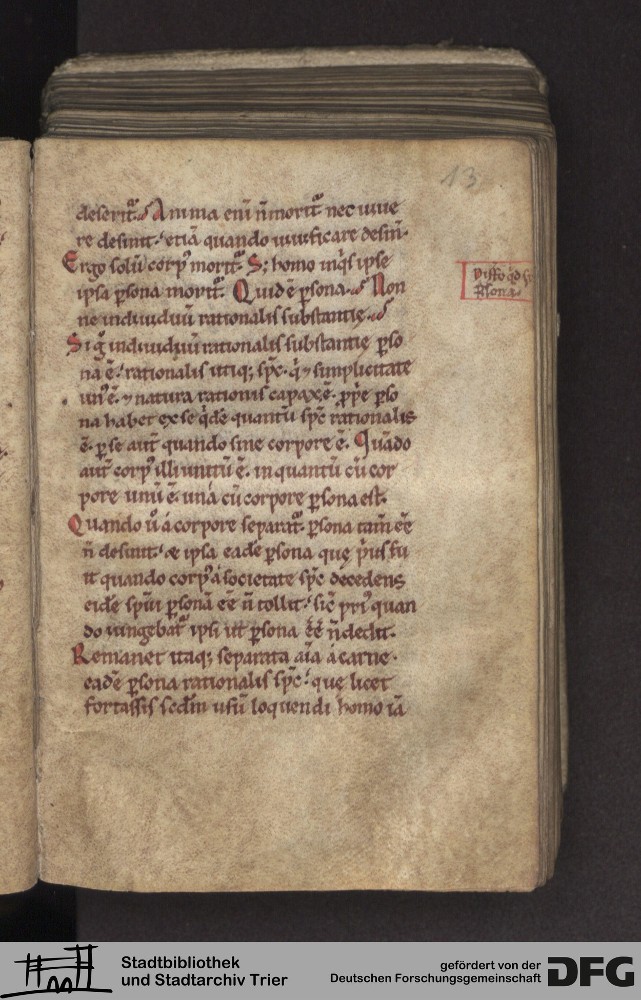 13
deserit᷑. Anima eni̅ n̅ morit᷑ nec uiue
re desinit. etiā quando uiuificare desin̅.
Ergo solū corpꝰ morit᷑. S; homo inq̇s ipse
ipsa ꝑsona morit᷑. Quid ē ꝑsona. Non
ne indiuiduū rationalis substantię.
Si g̊ indiuiduū rationalis substantię ꝑso
na ē. rationalis utiq; sp̅c. q̇ ⁊ simplicitate
unꝰ ē. ⁊ natura rationis capax ē. ꝓp̅e ꝑso
na habet ex se q̇dē quantū sp̅c rationalis
ē. ꝑ se aut̅ quando sine corpore ē. Quādo
aut̅ corpꝰ illi unitū ē. in quantū cū cor
pore unū ē. una cū corpore ꝑsona est.
Quando ů á corpore separat᷑. ꝑsona tam̅ e̅e
n̅ desinit. & ipsa eadē ꝑsona quę ṗus fu
it quando corpꝰ á societate sp̅c decedens
eidē sp̅ui ꝑsonā e̅e n̅ tollit. sic̅ priꝰ quan
do iungebat᷑ ipsi ut ꝑsona e̅e̅t n̅ dedit.
Remanet itaq; separata ai̅a á carne.
eadē ꝑsona rationalis sp̅c. quę licet
fortassis scd̅m usū loquendi homo iā
ꝑsona
Stadtbibliothek
und Stadtarchiv Trier
gefördert von der
Deutschen Forschungsgemeinschaft
DFG